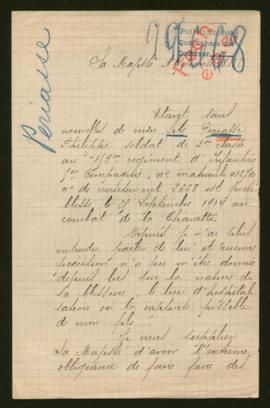 Periasse
Sa Majesté
Etant sans
nouvelles de mon fils
Philippe soldat de 2me classe
au régiment d'Infanterie
Compagnie, no matricule
no de recrutement 2668 est porté
blessé le 29 Septembre 1914 au
combat de la
Depuis je n'ai plus
entendu parler de lui et aucune
précision n'a pu m'être donnée
depuis lors sur la nature de
sa blessure le lieu d'hospitali-
sation ou la captivité possible
de mon fils.
Je viens supplier
Sa Majesté d'avoir l'extrême
obligeance de faire faire des